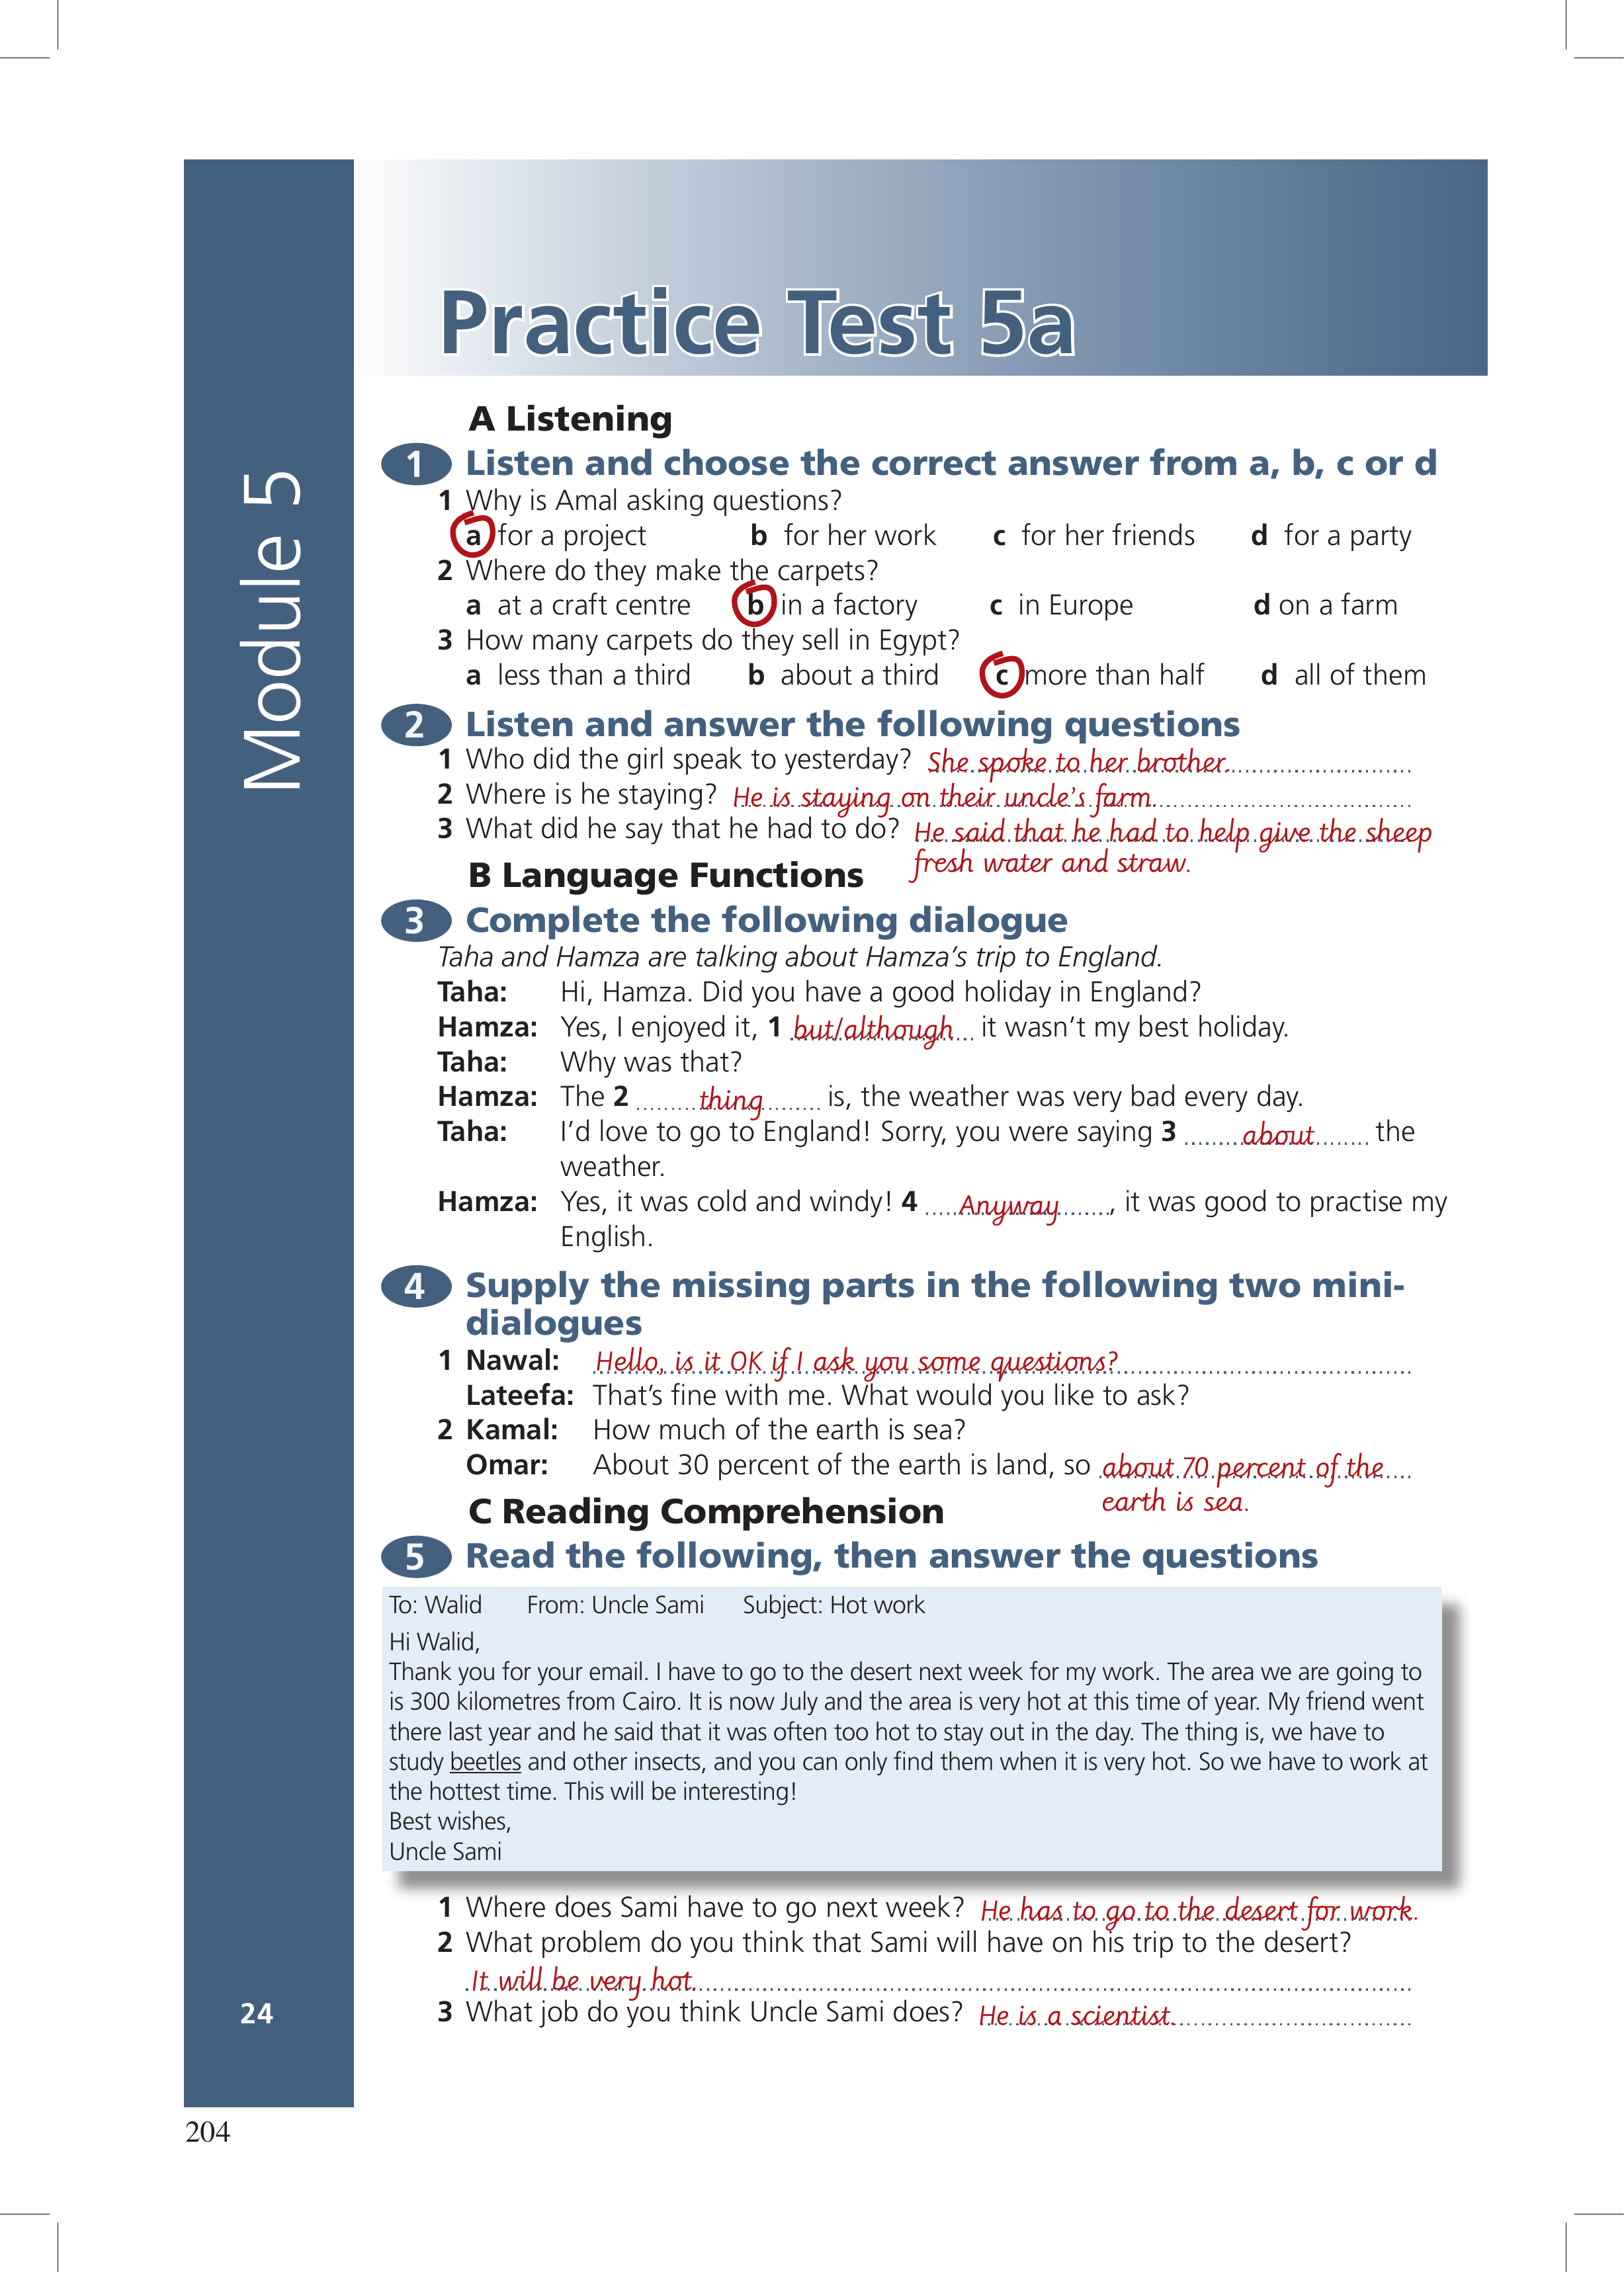 Module 5
Practice Test 5a
A Listening
1 Listen and choose the correct answer from a, b, c or d
1 Why is Amal asking questions?
a for a project b for her work c for her friends d for a party
2 Where do they make the carpets?
a at a craft centre b in a factory c in Europe d on a farm
3 How many carpets do they sell in Egypt?
a less than a third b about a third c more than half d all of them
2 Listen and answer the following questions
1 Who did the girl speak to yesterday? She spoke to her brother.
2 Where is he staying? He is staying on their uncle's farm.
3 What did he say that he had to do? He said that he had to help give the sheep
fresh water and straw.
B Language Functions
3 Complete the following dialogue
Taha and Hamza are talking about Hamza's trip to England.
Taha: Hi, Hamza. Did you have a good holiday in England?
Hamza: Yes, I enjoyed it, 1 but/although it wasn't my best holiday.
Taha: Why was that?
Hamza: The 2 thing is, the weather was very bad every day.
Taha: I'd love to go to England! Sorry, you were saying 3 about the
weather.
Hamza: Yes, it was cold and windy! 4 Anyway, it was good to practise my
English.
4 Supply the missing parts in the following two mini-
dialogues
1 Nawal: Hello, is it OK if I ask you some questions?
Lateefa: That's fine with me. What would you like to ask?
2 Kamal: How much of the earth is sea?
Omar: About 30 percent of the earth is land, so about 70 percent of the
earth is sea.
C Reading Comprehension
5 Read the following, then answer the questions
To: Walid From: Uncle Sami Subject: Hot work
Hi Walid,
Thank you for your email. I have to go to the desert next week for my work. The area we are going to
is 300 kilometres from Cairo. It is now July and the area is very hot at this time of year. My friend went
there last year and he said that it was often too hot to stay out in the day. The thing is, we have to
study beetles and other insects, and you can only find them when it is very hot. So we have to work at
the hottest time. This will be interesting!
Best wishes,
Uncle Sami
1 Where does Sami have to go next week? He has to go to the desert for work.
2 What problem do you think that Sami will have on his trip to the desert?
It will be very hot.
3 What job do you think Uncle Sami does? He is a scientist.
24
204